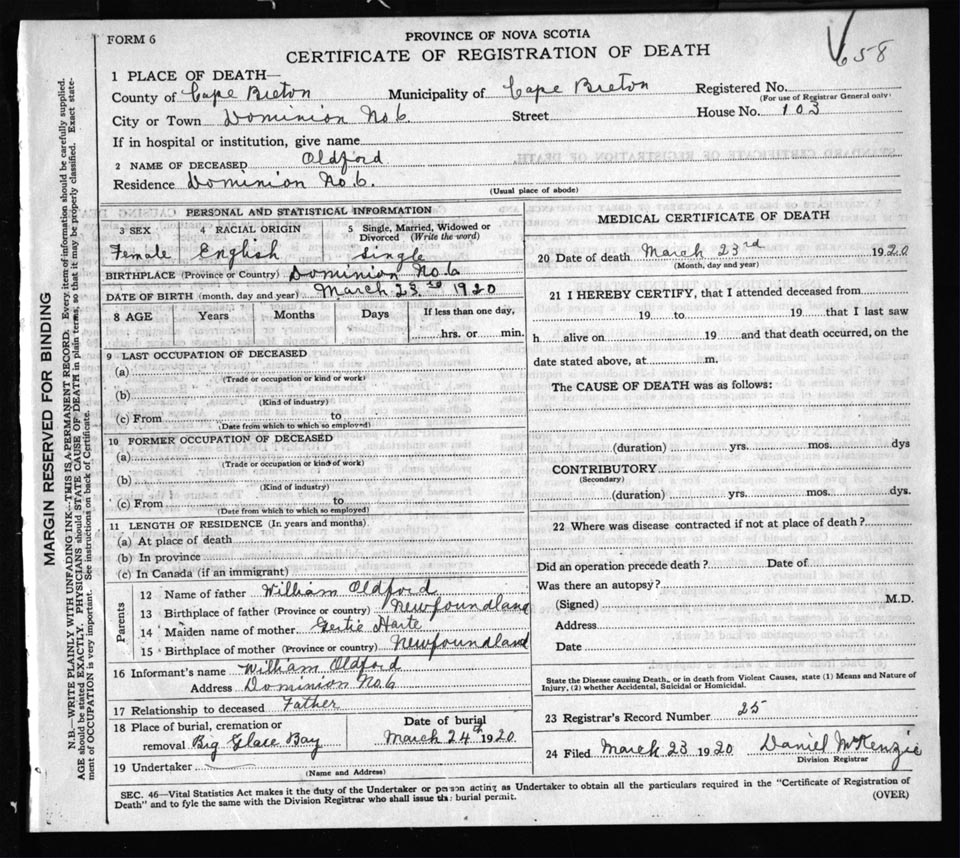 FORM 6
PROVINCE OF NOVA SCOTIA
CERTIFICATE OF REGISTRATION OF DEATH
658
1 PLACE OF DEATH—
County of Cape Breton Municipality of Cape Breton Registered No.
(For use of Registrar General only)
City or Town Dominion No. 6 Street House No. 103
If in hospital or institution, give name
2 NAME OF DECEASED Oldford
Residence Dominion No. 6.
(Usual place of abode)
PERSONAL AND STATISTICAL INFORMATION
3 SEX 4 RACIAL ORIGIN 5 Single, Married, Widowed or Divorced (Write the word)
Female English Single
BIRTHPLACE (Province or Country) Dominion No. 6
DATE OF BIRTH (month, day and year) March 23rd 1920
8 AGE Years Months Days If less than one day, hrs. or min.
9 LAST OCCUPATION OF DECEASED
(a)
(Trade or occupation or kind or work)
(b)
(Kind of industry)
(c) From to
(Date from which to which so employed)
10 FORMER OCCUPATION OF DECEASED
(a)
(Trade or occupation or kind of work)
(b)
(Kind of industry)
(c) From to
(Date from which to which so employed)
11 LENGTH OF RESIDENCE (In years and months)
(a) At place of death
(b) In province
(c) In Canada (if an immigrant)
Parents
12 Name of father William Oldford
13 Birthplace of father (Province or country) Newfoundland
14 Maiden name of mother Gertie Harte
15 Birthplace of mother (Province or country) Newfoundland
16 Informant's name William Oldford
Address Dominion No. 6
17 Relationship to deceased Father
18 Place of burial, cremation or removal Big Glace Bay
Date of burial March 24th 1920
19 Undertaker
(Name and Address)
MEDICAL CERTIFICATE OF DEATH
20 Date of death March 23rd 1920
(Month, day and year)
21 I HEREBY CERTIFY, that I attended deceased from
19 to 19 that I last saw
h alive on 19 and that death occurred, on the
date stated above, at m.
The CAUSE OF DEATH was as follows:
(duration) yrs. mos. dys
CONTRIBUTORY
(Secondary)
(duration) yrs. mos. dys.
22 Where was disease contracted if not at place of death?
Did an operation precede death? Date of
Was there an autopsy?
(Signed) M.D.
Address
Date
State the Disease causing Death, or in death from Violent Causes, state (1) Means and Nature of
Injury, (2) whether Accidental, Suicidal or Homicidal.
23 Registrar's Record Number 25
24 Filed March 23 1920 Daniel McKenzie
Division Registrar
SEC. 46—Vital Statistics Act makes it the duty of the Undertaker or person acting as Undertaker to obtain all the particulars required in the "Certificate of Registration of
Death" and to fyle the same with the Division Registrar who shall issue the burial permit.
(OVER)
MARGIN RESERVED FOR BINDING
N.B.—WRITE PLAINLY WITH UNFADING INK—THIS IS A PERMANENT RECORD. Every item of information should be carefully supplied.
AGE should be stated EXACTLY. PHYSICIANS should STATE CAUSE OF DEATH in plain terms, so that it may be properly classified. Exact state-
ment of OCCUPATION is very important. See instructions on back of Certificate.